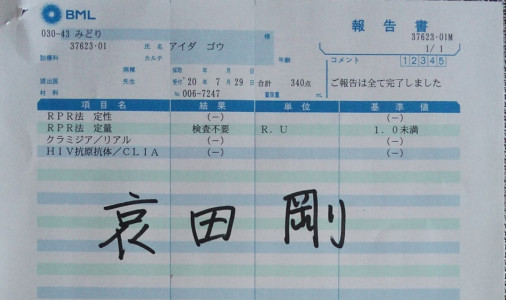 BML
報告書
030-43 みどり
様
37623-01M
37623-01
氏名
アイダ ゴウ
1/1
診療科
カルテ
年齢
コメント
12345
病棟
採取 年 月 日
提出医
受付 '20年 7月29日
合計 340点
ご報告は全て完了しました
材料
No. 006-7247
項目名 結果 単位 基準値
RPR法 定性 (-) (-)
RPR法 定量 検査不要 R.U 1.0未満
クラミジア/リアル (-) (-)
HIV抗原抗体/CLIA (-) (-)
哀田剛